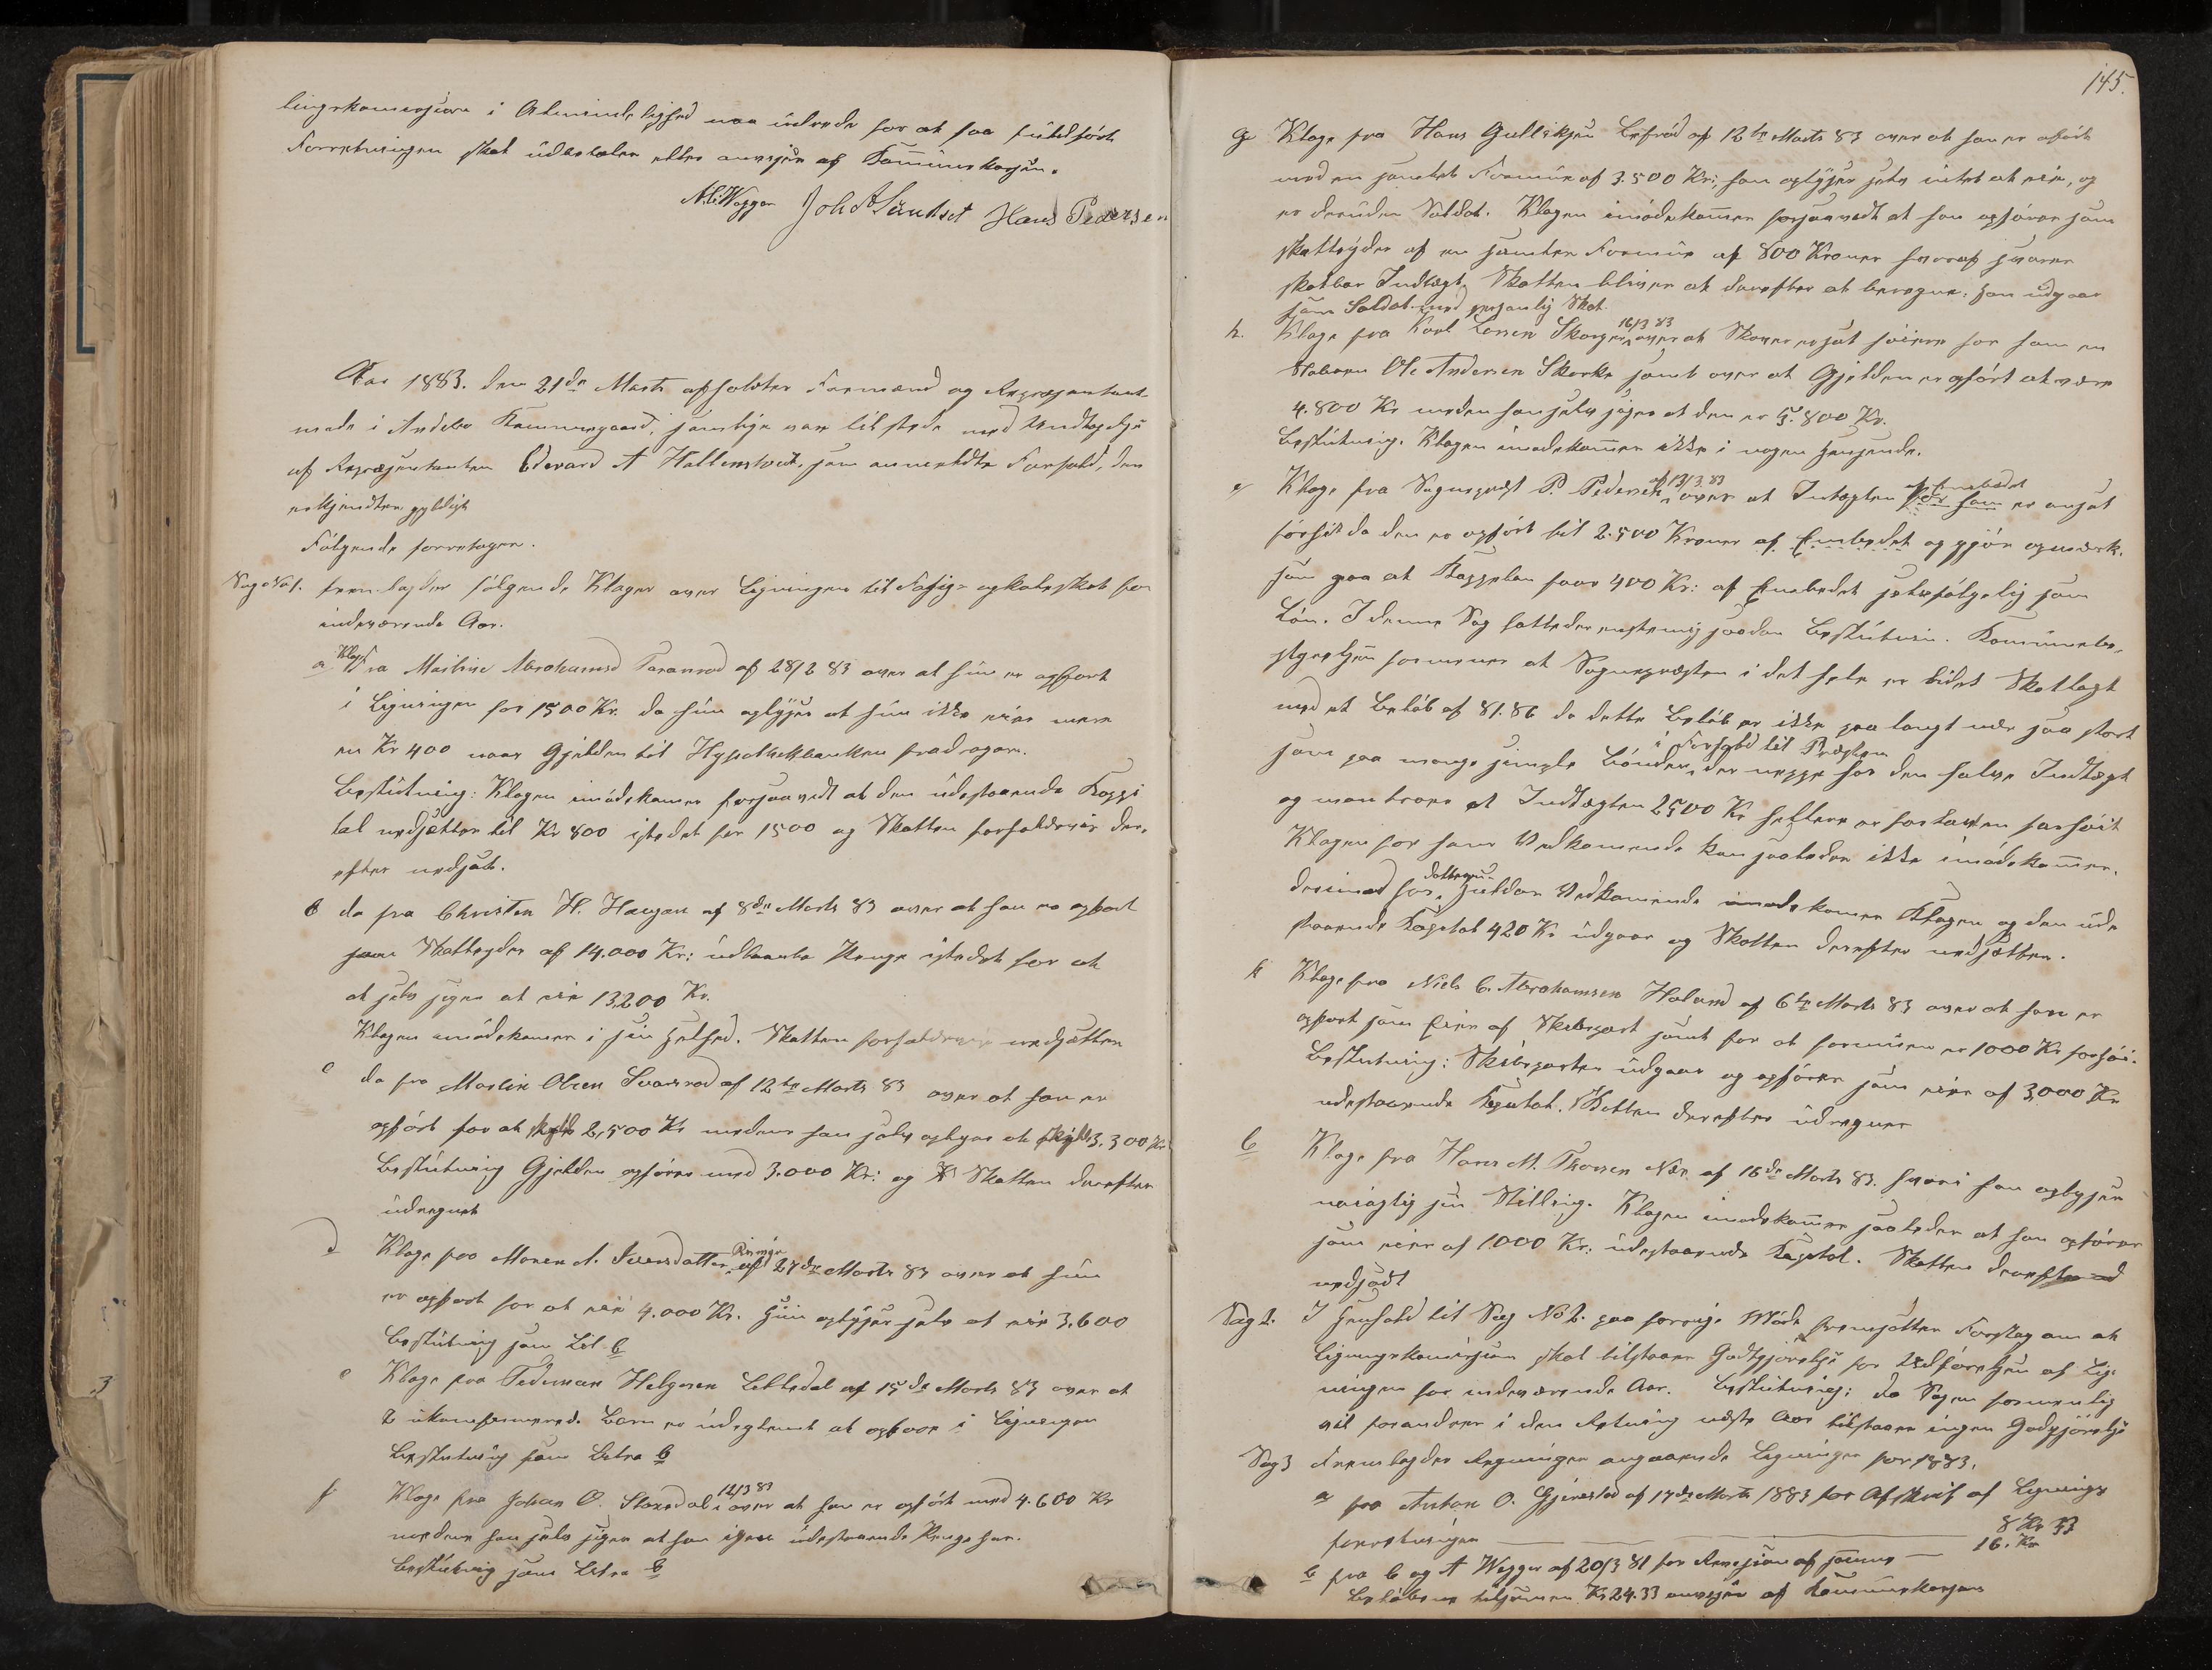 lingskomisjon i Almindelighed maa udrede for at faa fuldført
Forretningen skal udbetales eller anvises af Kommunekassen.
N. C. Wegger Joh A Sundset Hans Pedersen
Aar 1883. den 21de Marts afholdtes Formænd og Repræsentant
møde i Andebo Kommunegaard, samtlige var tilstede med Undtagelse
af Repræsentanten Edevard A Hallenstvedt, som anmeldte Forfald, der
erkjendtes gyldigt
Følgende foretoges.
Sag No 1. fremlagdes følgende Klager over Ligningen til Fattig- og Skoleskat for
indeværende Aar.
a Klage fra Mathise Abrahamsd af 28/2 83 over at hun er opført
i Ligningen for 1500 Kr. da hun oplyser at hun ikke eier mere
en Kr 400 naar Gjelden til Hypothekbanken fradrages.
Beslutning: Klagen imødekommes forsaavidt at den udestaaende Kapi
tal nedsættes til Kr 800 istedet for 1500 og Skatten forholdsvis der-
efter nedsat.
b do fra Christen H. Haugan af 8de Marts 83 over at han er opført
som Skatteyder af 14.000 Kr: udlaante Penge istedet for at
at selv siger at eie 13200 Kr.
Klagen imødekommes i sin Helhed. Skatten forholdsvis nedsættes
c do fra Martin Olsen Svarsrød af 12te Marts 83 over at han er
opført for at skylde 2,500 Kr medens han selv oplyser at skylde 3.300 Kr
Beslutning Gjelden opføres med 3.000 Kr: og Skatten derefter
udregnet
d Klage fra Maren A. Iversdatter af 27de Marts 83 over at hun
er opført for at eie 4.000 Kr. Hun oplyser selv at eie 3.600
Beslutning som Lit b
e Klage fra Tideman Helgesen af 15de Marts 83 over at
2 ukonfirmered. Børn er udeglemt at opføre i Ligningen
Beslutning som Litra b
f Klage fra Johan O. Skoredal 12/3 83 over at han er opført med 4.600 Kr
medens han selv siger at han igen udestaaende Penge har.
Beslutning som Litra b
145.
g Klage fra Hans Gulliksen af 12te Marts 83 over at han er opført
med en samlet Formue af 3.500 Kr; han oplyser selv intet at eie, og
er desuden Soldat. Klagen imødekommes forsaavidt at han opføres som
skatteyder af en samlet Formue af 800 Kroner hvoraf svarer
skatbar Indtægt. Skatten bliver at derefter at beregne: han udgaar
som Soldat med personlig Skat.
h. Klage fra Karl Larsen Skorge 16/3 83 over at Skoven er sat høiere for ham en
Naboen Ole Andersen Skorke samt over at Gjelden er opført at være
4.800 Kr medens han selv siger at den er 5.800 Kr.
Beslutning. Klagen imødekommes ikke i nogen henseende.
Klage fra Sogneprest P. Pedersen af 13/3 83 over at Indtægten af Embedet for ham er ansat
forhøit da den er opført til 2.500 Kroner af Embedet og gjør opmærk-
som paa at Kappelan faar 400 Kr: af Embedet selvfølgelig som
Løn. I denne Sag fattedes enstemig saadan Beslutnin. Kommunebe-
styrelsen formener at Sognepresten i det hele er lidet Skatlagt
med et Beløb af 81.86 da dette Beløb er ikke paa langt nær saa stort
som paa mange simple Bønder i Forhold til Presten der neppe har den halve Indtægt
og man troer at Indtægten 2500 Kr hellere er forlav en forhøit
Klagen for hans Vedkommende kan saaledes ikke imødekommes.
derimod for datterens Huldas Vedkommende imødekommes Klagen og den ude
staaende Kapital 420 Kr udgaar og Skatten derefter nedsættes.
k Klage fra Niels C. Abrahamsen Holand af 6te Marts 83 over at han er
opført som Eier af Skibspart samt for at formuen er 1000 Kr forhøi.
Beslutning: Skibsparten udgaar og opføres som eier af 3,000 Kr
udestaaende Kapital. Skatten derefter udregnes
l Klage fra Hans M. Thorsen Nær af 16de Marts 83. hvori han oplyser
nøiagtig sin Stilling. Klagen imødekommes saaledes at han opføres
som eier af 1000 Kr: udestaaende Kapital. Skatten derefter
nedsadt
Sag 2. I Henhold til Sag No 2. paa forrige Møde fremsattes Forslag om at
Ligningskomisjon skal tilstaaes Godtgjørelse for Udførelsen af Lig-
ningen for indeværende Aar. Beslutning: Da Sagen formentlig
vil forandres i den Retning næste Aar tilstaaes ingen Godgjørelse
Sag 3 Fremlagdes Regninger angaaende Ligningen for 1883.
a fra Anton O. Gjerestad af 17de Marts 1883 for Afskrift af Lignings
forretningen 8 Kr 33
b fra C og A Wegger af 20/3 81 for Revisjon af samme 16. Kr
Beløbene tilsammen Kr 24.33 anvises af Kommunekassen